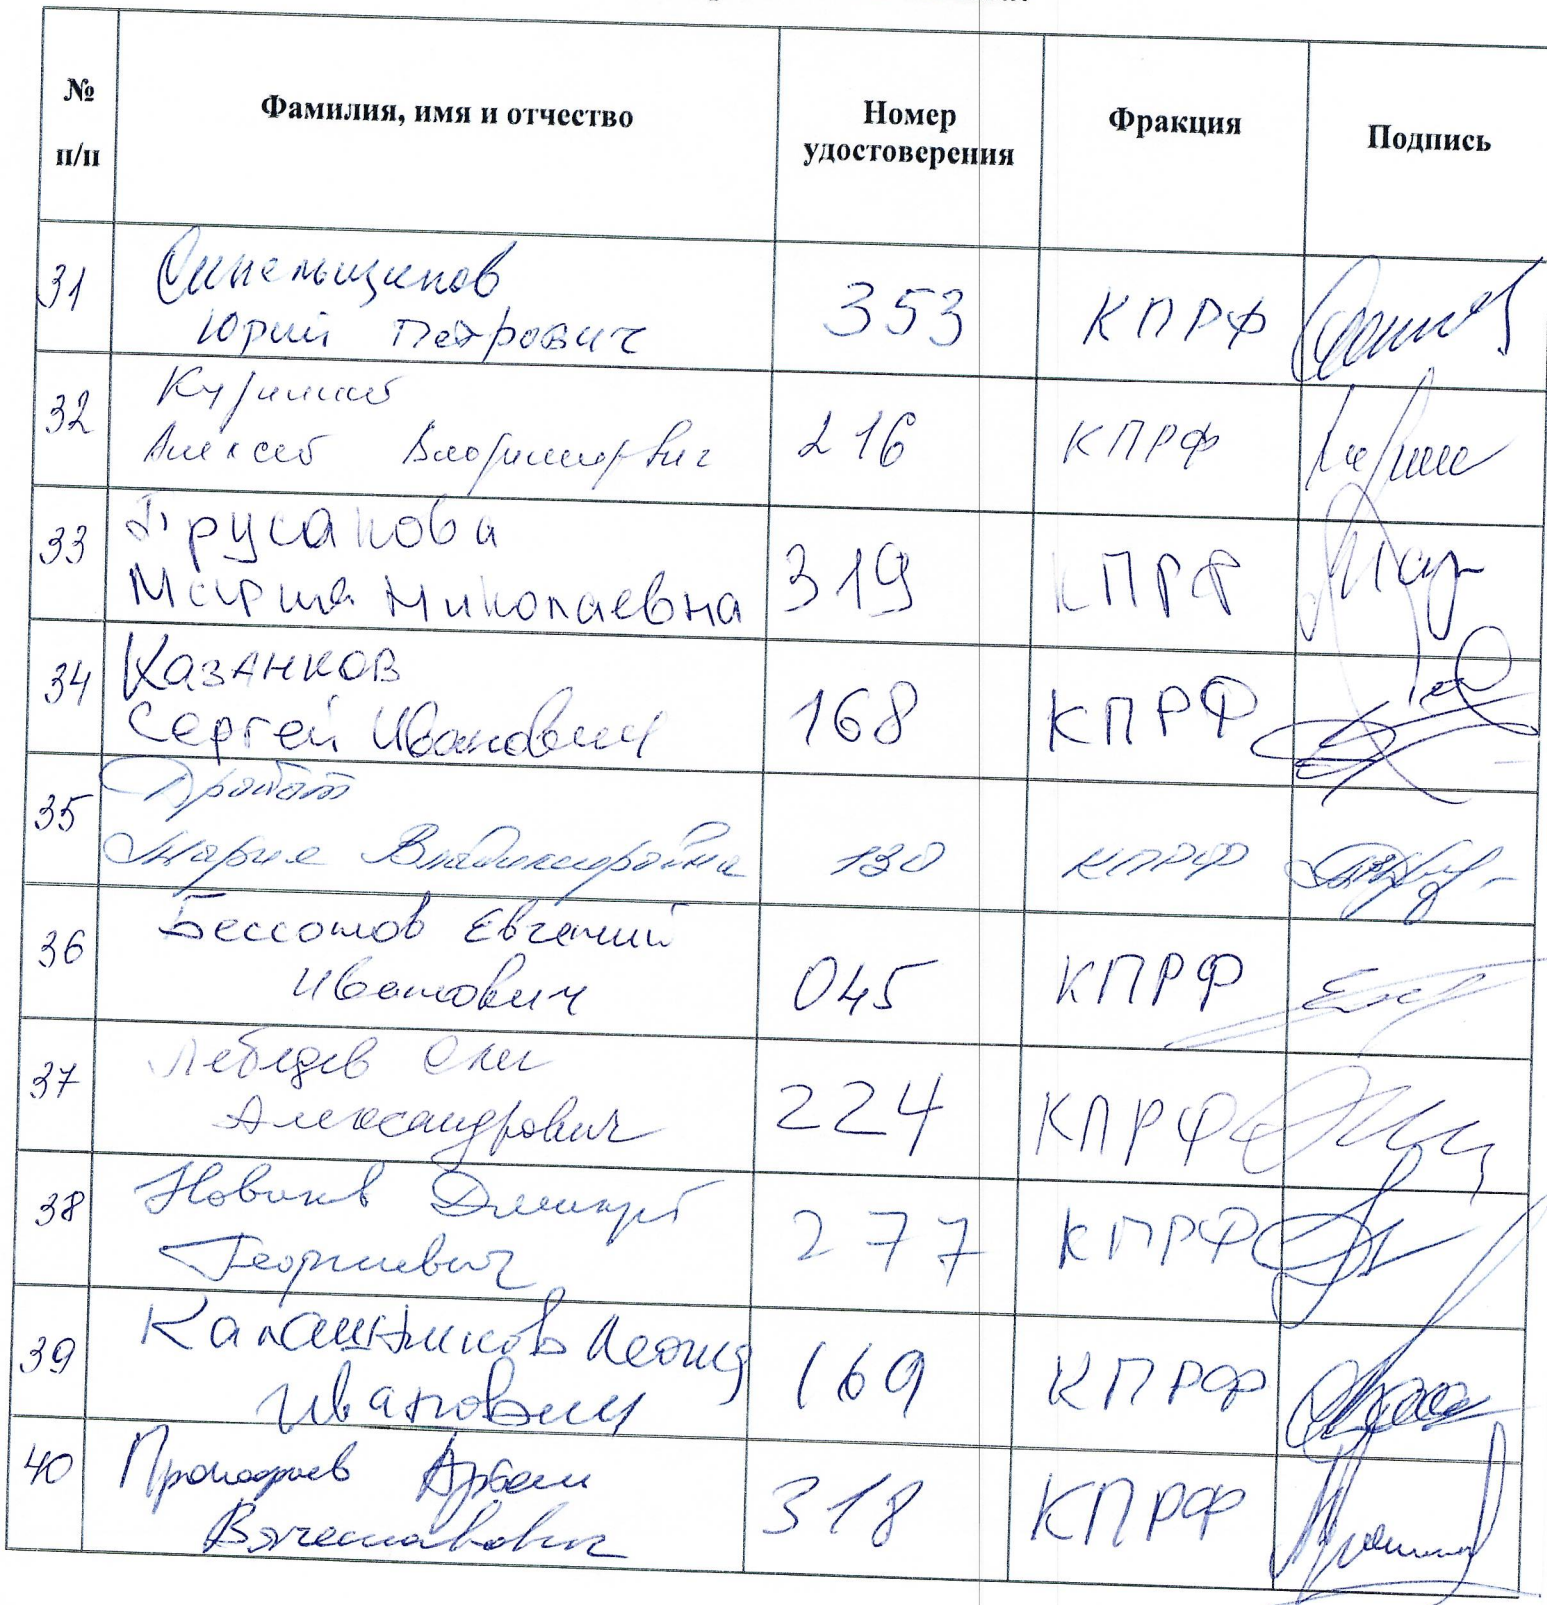 № п/п
Фамилия, имя и отчество
Номер удостоверения
Фракция
Подпись
31 Синельщиков
Юрий Петрович 353 КПРФ
32 Куринный
Алексей Владимирович 216 КПРФ
33 Прусакова
Мария Николаевна 319 КПРФ
34 Казанков
Сергей Иванович 168 КПРФ
35 Дробот
Мария Владимировна 130 КПРФ
36 Бессонов Евгений
Иванович 045 КПРФ
37 Лебедев Олег
Александрович 224 КПРФ
38 Новиков Дмитрий
Георгиевич 277 КПРФ
39 Калашников Леонид
Иванович 169 КПРФ
40 Прокофьев Артём
Вячеславович 318 КПРФ